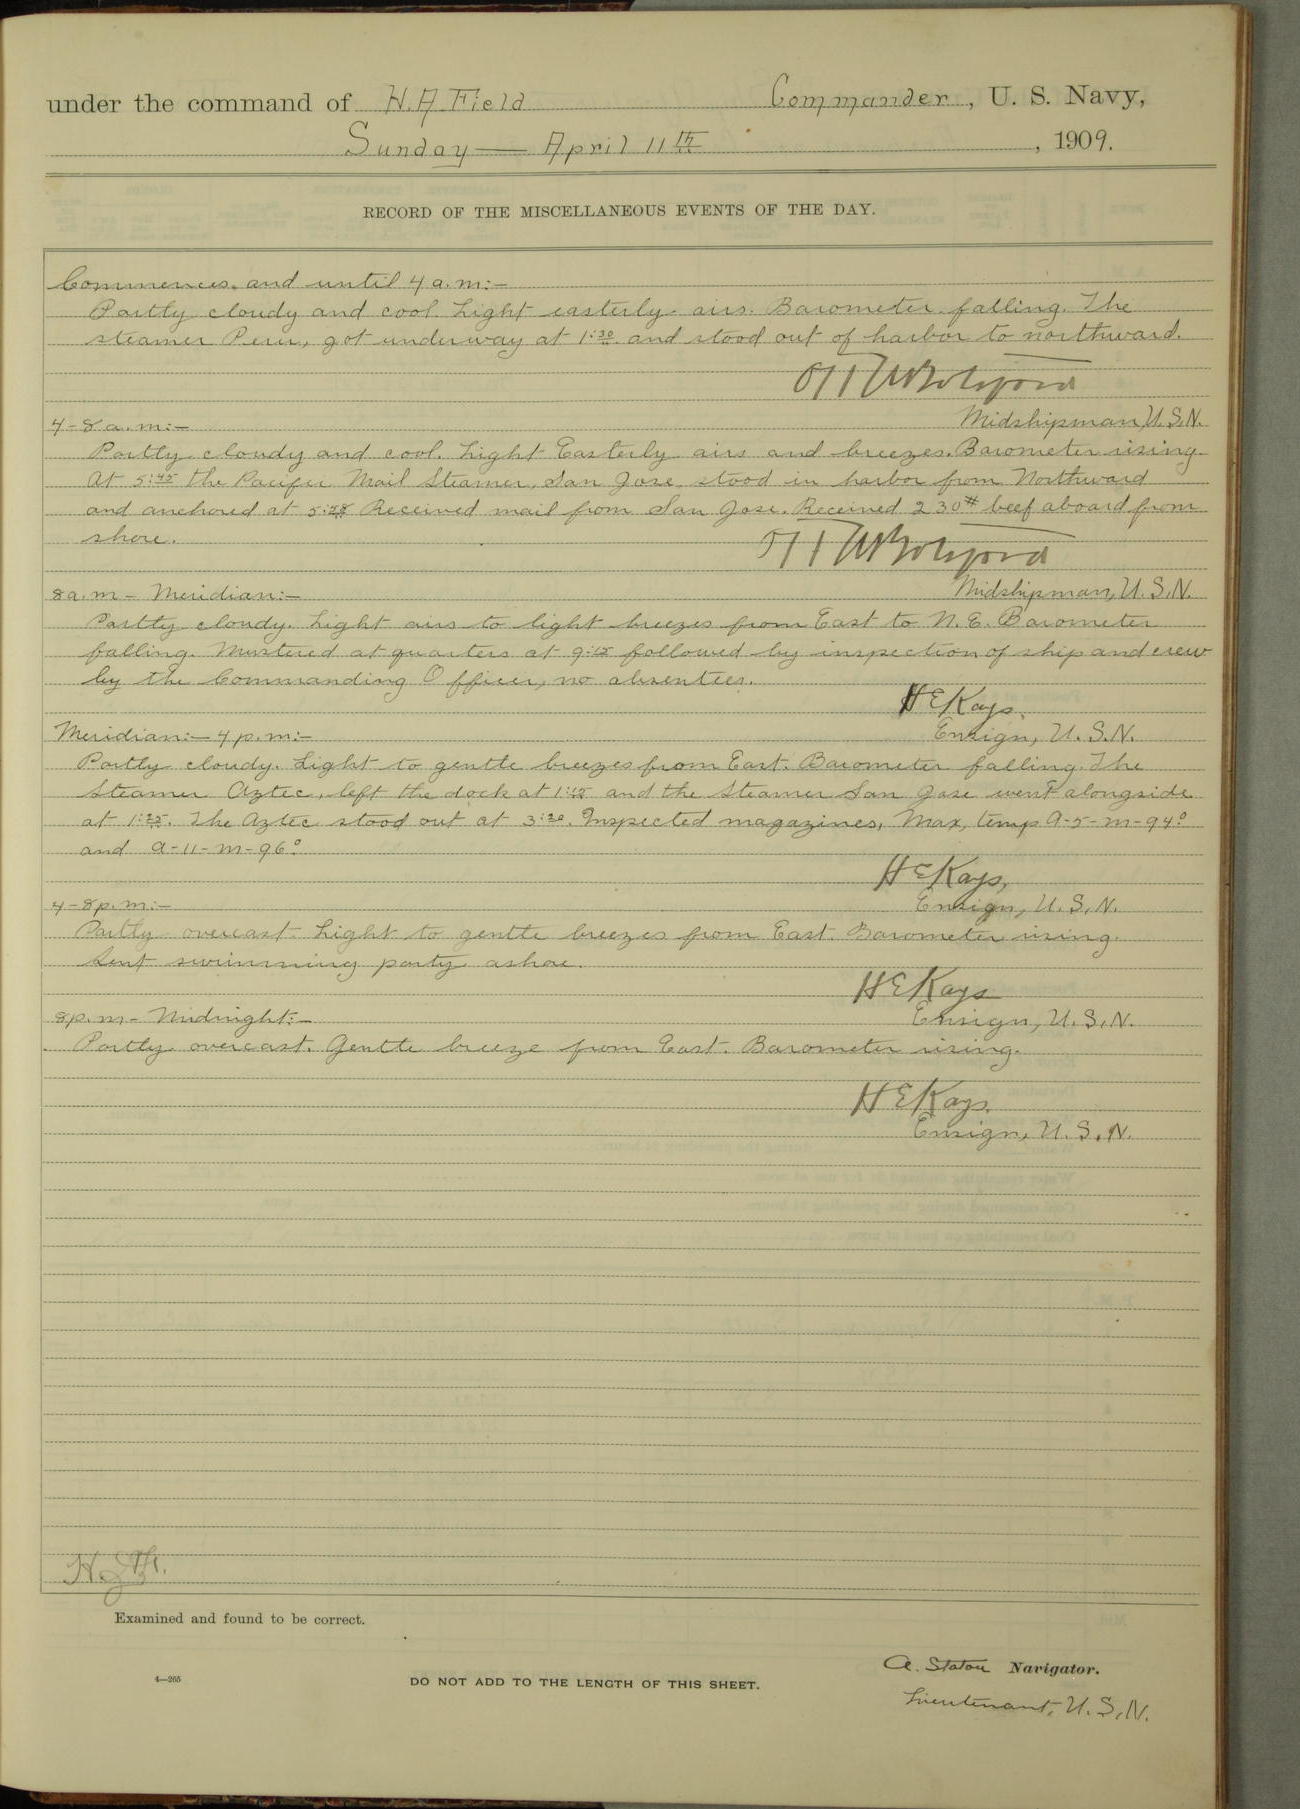 under the command of H. A. Field Commander, U. S. Navy,
Sunday — April 11th, 1909.
RECORD OF THE MISCELLANEOUS EVENTS OF THE DAY.
Commences and until 4 a.m:-
Partly cloudy and cool. Light easterly airs. Barometer falling. The
steamer Peru, got underway at 1:30 and stood out of harbor to northward.
Midshipman, U.S.N.
4-8 a.m:-
Partly cloudy and cool. Light Easterly airs and breezes. Barometer rising.
At 5:45 the Pacific Mail Steamer, San Jose stood in harbor from Northward
and anchored at Received mail from San Jose. Received 230# beef aboard from
shore.
Midshipman, U.S.N.
8 a.m - Meridian:-
Partly cloudy. Light airs to light breezes from East to N. E. Barometer
falling. Mustered at quarters at 9:15 followed by inspection of ship and crew
by the Commanding Officer, no absentees.
H E Kays.
Ensign, U.S.N.
Meridian:- 4 p.m:-
Partly cloudy. Light to gentle breezes from East. Barometer falling. The
Steamer Aztec, left the dock at 1:15 and the Steamer San Jose went alongside
at 1:25. The Aztec stood out at 3:20. Inspected magazines, Max, temp A-5-m-94°
and A-11-m-96°
H E Kays,
Ensign, U.S.N.
4-8 p.m:-
Partly overcast. Light to gentle breezes from East. Barometer rising.
Sent swimming party ashore.
H E Kays
Ensign, U.S.N.
8 p.m - Midnight:-
Partly overcast. Gentle breeze from East. Barometer rising.
H E Kays.
Ensign, U.S.N.
Examined and found to be correct.
A. Staton Navigator.
4—265 DO NOT ADD TO THE LENGTH OF THIS SHEET.
Lieutenant, U.S.N.